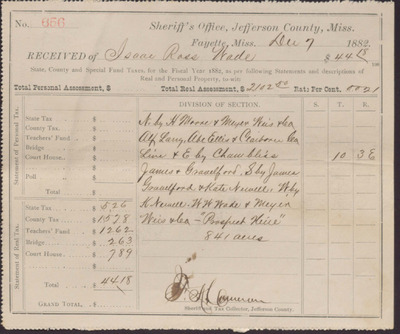 No. 656 Sheriff's Office, Jefferson County, Miss.
Fayette, Miss. Dec 9 1882
RECEIVED of Isaac Ross Wade $44.18
State, County and Special Fund Taxes, for the Fiscal Year 1882, as per following Statements and descriptions of
Real and Personal Property, to-wit:
Total Personal Assessment, $ Total Real Assessment, $2102.00 Rat: Per Cent.
Statement of Personal Tax.
State Tax $
County Tax. $
Teachers' Fund $
Bridge $
Court House $
Poll $
Total $
Statement of Real Tax.
State Tax $ 5.26
County Tax $ 15.78
Teachers' Fund $ 12.62
Bridge $ 2.63
Court House $ 7.89
Total $ 44.18
GRAND TOTAL. $
DIVISION OF SECTION. S. T. R.
N. by H Moore & Meyer Weis & Co
Alf Lany, Abe Ellis & Claiborne Co
Line & E by Chambliss 10 3E
James & Gradelford S by James
Gradelford & Kate Newell W. by
K Newell W. W Wade & Meyer
Weis & Co - "Prospect Hill"
841 acres
Cameron
Sheriff and Tax Collector, Jefferson County.